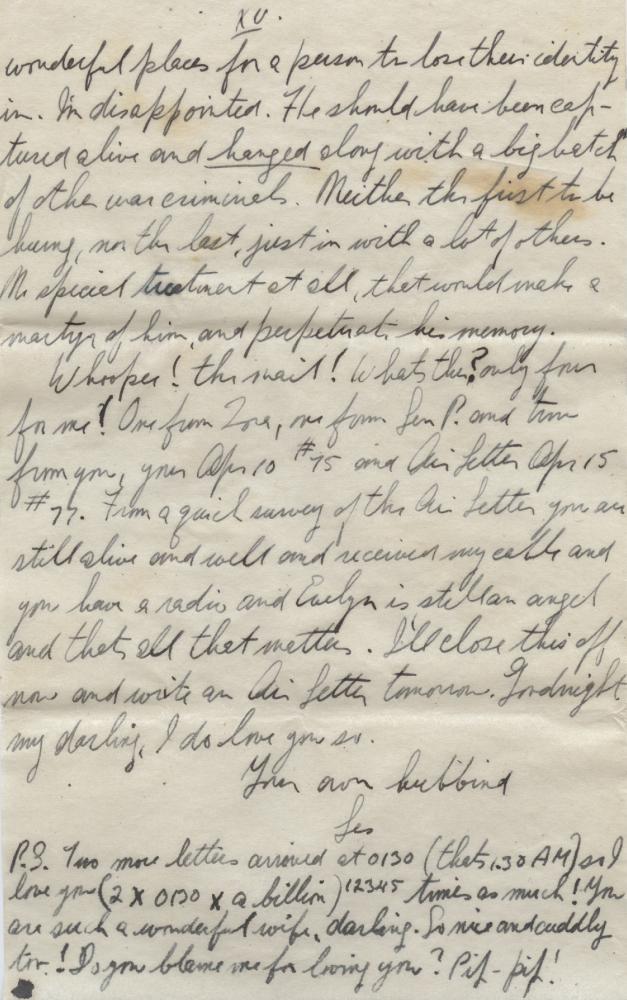 XV.
wonderful places for a person to lose their identity
in. I'm disappointed. He should have been cap-
tured alive and hanged along with a big batch
of other war criminals. Neither the first to be
hung, nor the last, just in with a lot of others.
No special treatment at all, that would make a
martyr of him, and perpetuate his memory.
Whoopee! the mail! Whats this? only four
for me! One from Zora, one from Len P. and two
from you, your Apr 10 #75 and Air Letter Apr 15
#77. From a quick survey of the Air Letter you are
still alive and well and received my cable and
you have a radio and Evelyn is still an angel
and thats all that matters. I'll close this off
now and write an Air Letter tomorrow. Goodnight
my darling, I do love you so.
Your own hubbind
Les
P.S. Two more letters arrived at 0130 (thats 1.30 AM) so I
love you (2 x 0130 x a billion)12345 times as much! You
are such a wonderful wife, darling. So nice and cuddly
too! Do you blame me for loving you? Pif-pif!